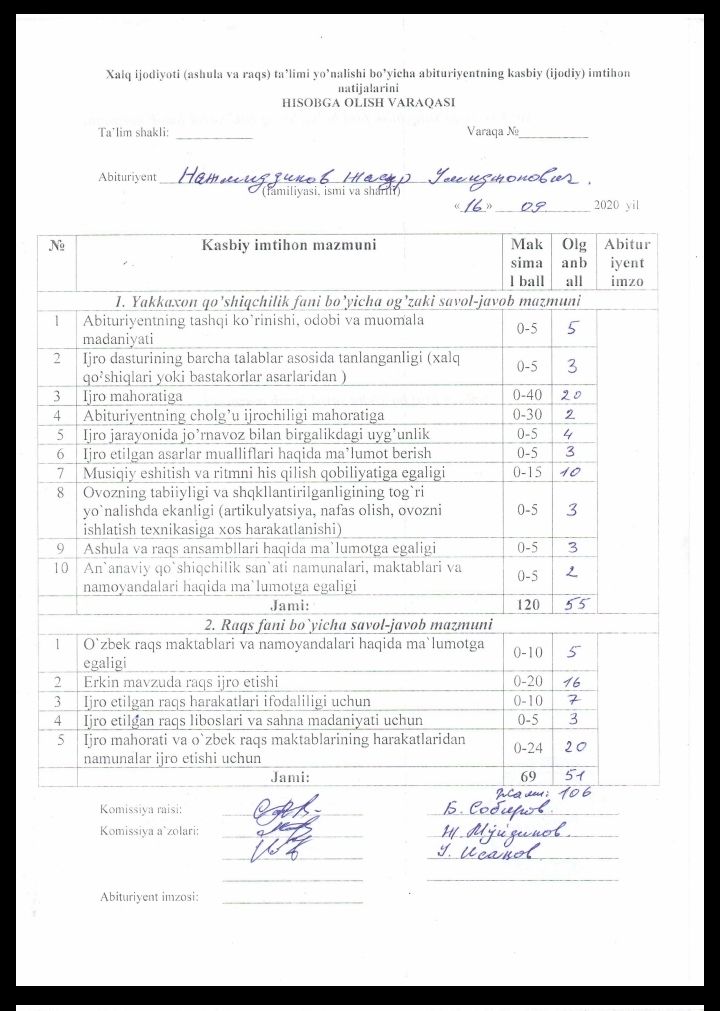 Xalq ijodiyoti (ashula va raqs) ta'limi yo'nalishi bo'yicha abituriyentning kasbiy (ijodiy) imtihon
natijalarini
HISOBGA OLISH VARAQASI
Ta'lim shakli: ____________ Varaqa №___________
Abituriyent Нажмиддинов Жасур
(familiyasi, ismi va sharifi)
« 16 » 09 2020 yil
№ Kasbiy imtihon mazmuni Mak sima l ball Olg anb all Abitur iyent imzo
1. Yakkaxon qo'shiqchilik fani bo'yicha og'zaki savol-javob mazmuni
1 Abituriyentning tashqi ko'rinishi, odobi va muomala
madaniyati 0-5 5
2 Ijro dasturining barcha talablar asosida tanlanganligi (xalq
qo'shiqlari yoki bastakorlar asarlaridan ) 0-5 3
3 Ijro mahoratiga 0-40 20
4 Abituriyentning cholg'u ijrochiligi mahoratiga 0-30 2
5 Ijro jarayonida jo'rnavoz bilan birgalikdagi uyg'unlik 0-5 4
6 Ijro etilgan asarlar mualliflari haqida ma'lumot berish 0-5 3
7 Musiqiy eshitish va ritmni his qilish qobiliyatiga egaligi 0-15 10
8 Ovozning tabiiyligi va shqkllantirilganligining tog`ri
yo`nalishda ekanligi (artikulyatsiya, nafas olish, ovozni
ishlatish texnikasiga xos harakatlanishi) 0-5 3
9 Ashula va raqs ansambllari haqida ma`lumotga egaligi 0-5 3
10 An`anaviy qo`shiqchilik san`ati namunalari, maktablari va
namoyandalari haqida ma`lumotga egaligi 0-5 2
Jami: 120 55
2. Raqs fani bo`yicha savol-javob mazmuni
1 O`zbek raqs maktablari va namoyandalari haqida ma`lumotga
egaligi 0-10 5
2 Erkin mavzuda raqs ijro etishi 0-20 16
3 Ijro etilgan raqs harakatlari ifodaliligi uchun 0-10 7
4 Ijro etilgan raqs liboslari va sahna madaniyati uchun 0-5 3
5 Ijro mahorati va o`zbek raqs maktablarining harakatlaridan
namunalar ijro etishi uchun 0-24 20
Jami: 69 51
Жами: 106
Komissiya raisi: Б. Собиров
Komissiya a`zolari: Ж. Мўйдинов.
У. Исаков
Abituriyent imzosi: